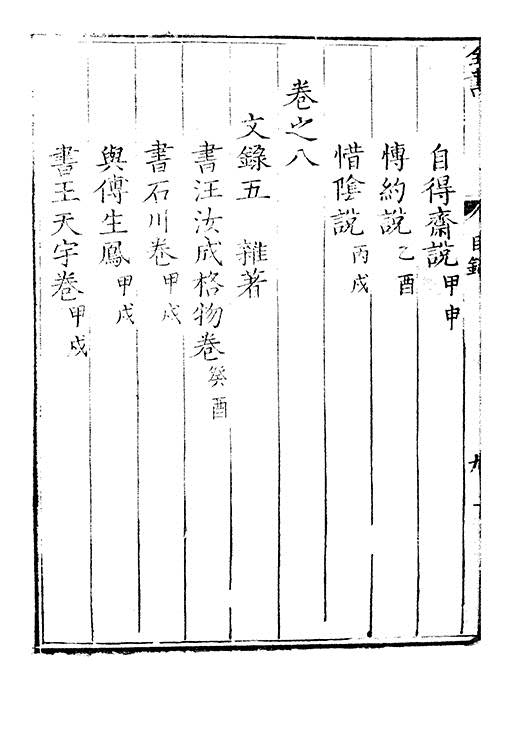 自得齋說甲申
博約說乙酉
惜陰說丙戌
卷之八
文錄五 雜著
書汪汝成格物卷癸酉
書石川卷甲戌
與傅生鳳甲戌
書王天宇卷甲戌